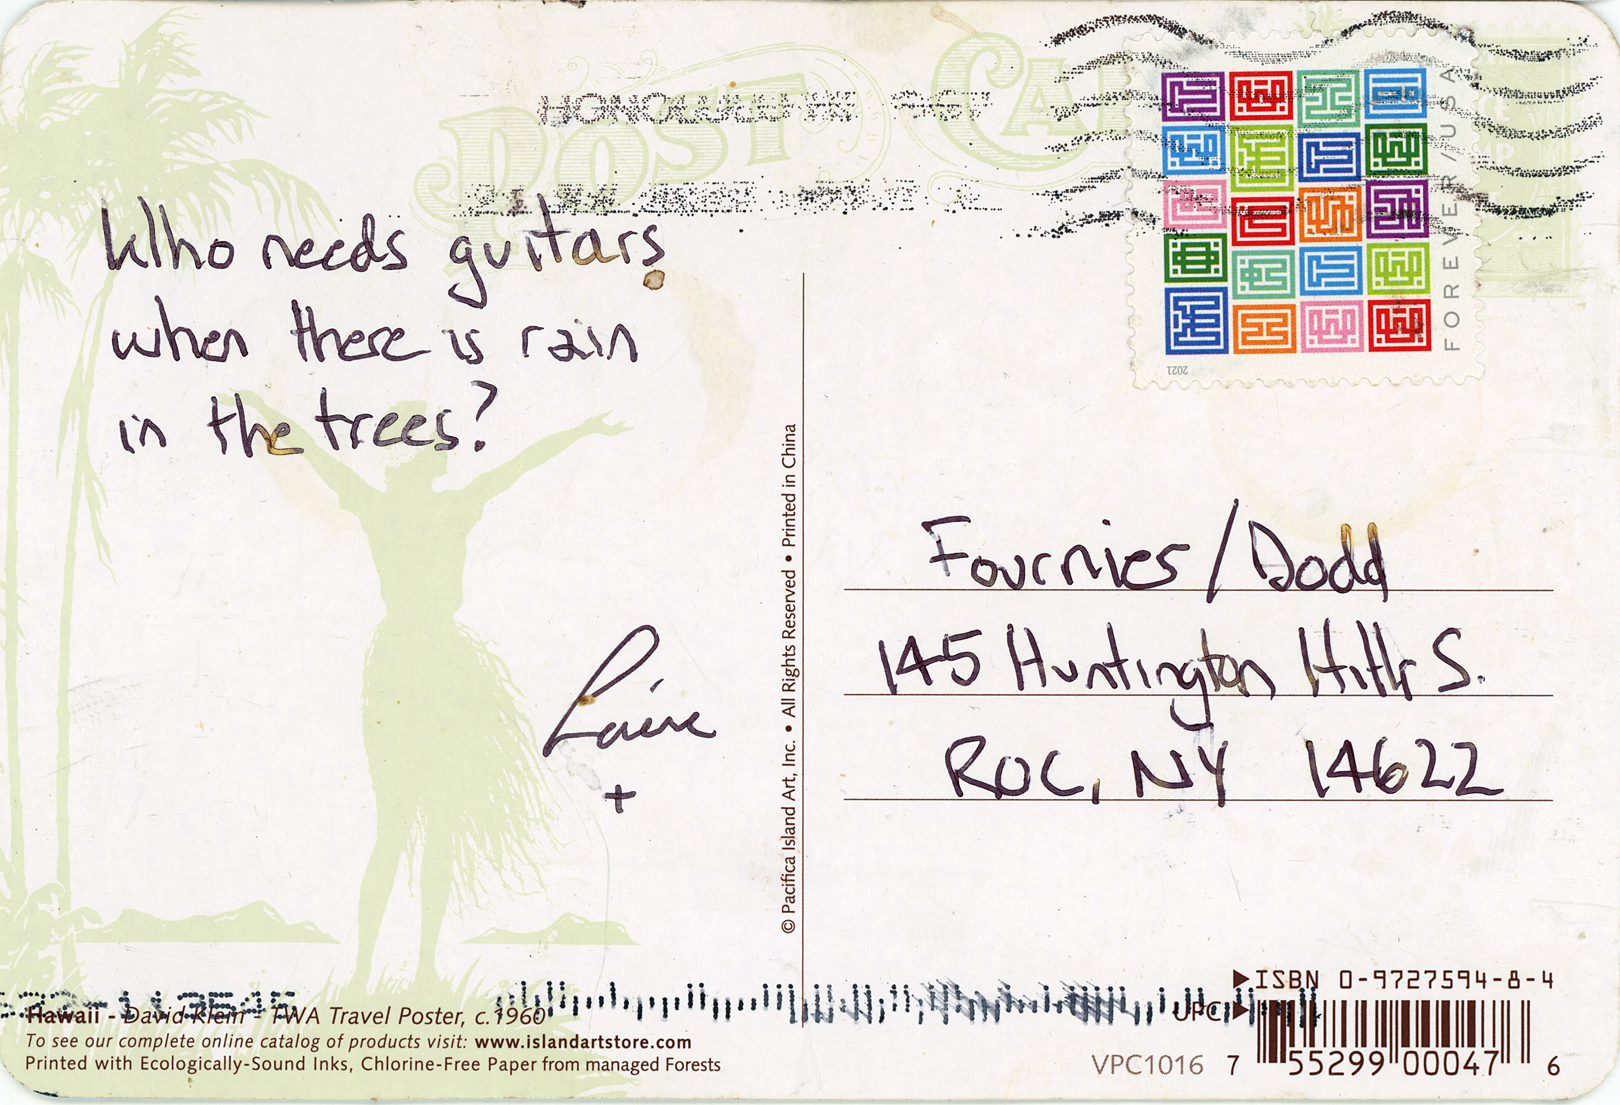 POST CA
HONOLULU HI 967
FOREVER/USA
2021
Who needs guitars
when there is rain
in the trees?
+
Fournies/Dodd
145 Huntington Hills S.
ROC, NY 14622
© Pacifica Island Art, Inc. • All Rights Reserved • Printed in China
Hawaii - David Klein - TWA Travel Poster, c.1960
To see our complete online catalog of products visit: www.islandartstore.com
Printed with Ecologically-Sound Inks, Chlorine-Free Paper from managed Forests
▶ISBN 0-9727594-8-4
UPC▶
VPC1016 7 55299 00047 6